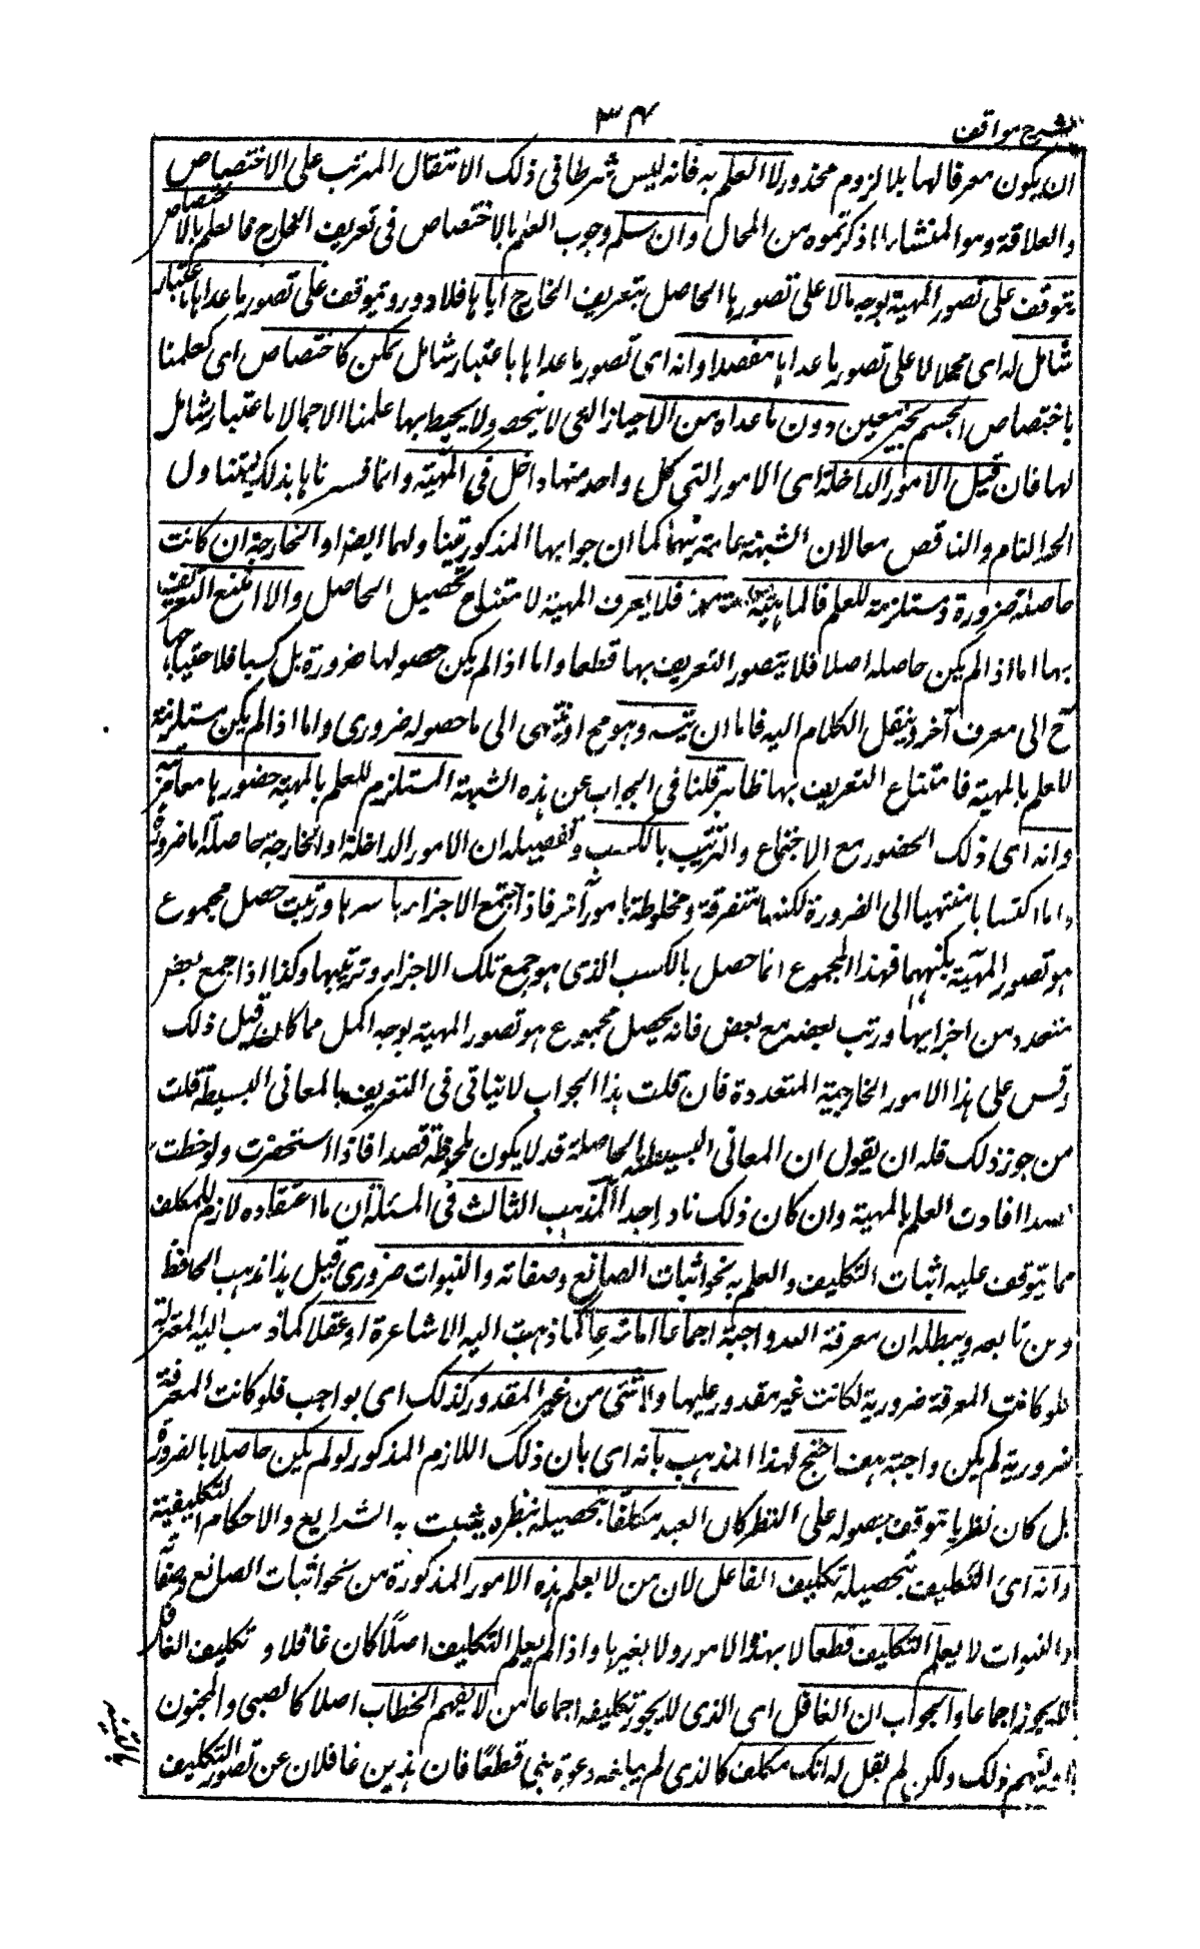 شرح مواقف
٣٤
ان يكون معرفا لها بلا لزوم محذور لا العلم به فانه ليس شرطا في ذلك الانتقال المرتب على الاختصاص
والعلاقة وهو المنشاء لما ذكرتموه من المحال وان سلم وجوب العلم بالاختصاص في تعريف الخارج فالعلم بالاختصاص
يتوقف على تصور المهية بوجه ما لا على تصورها الحاصل بتعريف الخارج اياها فلا دور ويتوقف على تصور ما عداها باعتبار
شامل له اى مجملا لا على تصور ما عداها مفصلا وانه اى تصور ما عداها باعتبار شامل ممكن كاختصاص اى كعلمنا
باختصاص الجسم بحيز معين دون ما عداه من الاحياز التي لا ينحصر ولا يحيط بها علمنا الا اجمالا باعتبار شامل
لها فان قيل الامور الداخلة اى الامور التي كل واحد منها داخل في المهية وانما فسرناها بذلك ليتناول
الحد التام والناقص معا لان الشبهة عامة فيهما كما ان جوابها المذكور فينا ولهما ايضا والخارجة ان كانت
حاصلة ضرورة ومستلزمة للعلم فالماهية فلا يعرف المهية لامتناع تحصيل الحاصل والا امتنع التعريف
بها اما اذا لم يكن حاصلة اصلا فلا يتصور التعريف بها قطعا واما اذا لم يكن حصولها ضرورة بل كسبا فلاحتياجها
ح الى معرف آخر وينقل الكلام اليه فاما ان يتسه وهو مح او ينتهى الى ما حصوله ضروري واما اذا لم يكن مستلزمة
للعلم بالمهية فامتناع التعريف بها ظاهر قلنا في الجواب عن هذه الشبهة المستلزم للعلم بالمهية حضورها معا مرتبة
وانه اى ذلك الحضور مع الاجتماع والترتيب بالكسب وتفصيله ان الامور الداخلة او الخارجة حاصلة اما ضرورة
واما اكتسابا منتهيا الى الضرورة لكنها متفرقة ومخلوطة بامور آخر فاذا اجتمع الاجزاء باسرها ورتبت حصل مجموع
هو تصور المهية بكنهها فهذا المجموع انما حصل بالكسب الذي هو جمع تلك الاجزاء وترتيبها وكذا اذا جمع بعض
متعدد من اجزايها ورتب بعضه مع بعض فانه يحصل مجموع هو تصور المهية بوجه اكمل مما كان قبل ذلك
وقس على هذا الامور الخارجية المتعددة فان قلت هذا الجواب لا يتاتى في التعريف بالمعانى البسيطة قلت
من جوز ذلك فله ان يقول ان المعاني البسيطة الحاصلة قد لا يكون ملحوظة قصدا فاذا استحضرت ولوحظت
قصدا افادت العلم بالمهية وان كان ذلك نادرا جدا المذهب الثالث في المسئلة ان ما اعتقاده لازم للمكلف
مما يتوقف عليه اثبات التكليف والعلم به نحو اثبات الصانع وصفاته والنبوات ضروري قيل هذا مذهب الحافظ
ومن تابعه ويبطله ان معرفة الله واجبة اجماعا اما شرعا كما ذهبت اليه الاشاعرة او عقلا كما ذهب اليه المعتزلة
فلو كانت المعرفة ضرورية لكانت غير مقدور عليها ولا شئ من غير المقدور كذلك اى بواجب فلو كانت المعرفة
ضرورية لم يكن واجبة هف احتج لهذا المذهب بانه اى بان ذلك اللازم المذكور لو لم يكن حاصلا بالضرورة
بل كان نظريا يتوقف حصوله على النظر كان العبد مكلفا بتحصيله بنظره يثبت به الشرايع والاحكام التكليفية
وانه اى التكليف بتحصيله تكليف الغافل لان من لا يعلم هذه الامور المذكورة من نحو اثبات الصانع وصفاته
والنبوات لا يعلم التكليف قطعا لا بهذه الامور ولا بغيرها واذا لم يعلم التكليف اصلا كان غافلا وتكليف الغافل
لا يجوز اجماعا والجواب ان الغافل اى الذي لا يجوز تكليفه اجماعا من لا يفهم الخطاب اصلا كالصبي والمجنون
او يفهم ذلك ولكن لم يقل له انك مكلف كالذي لم يبلغه دعوة نبي قطعا فان هذين غافلان عن تصور التكليف